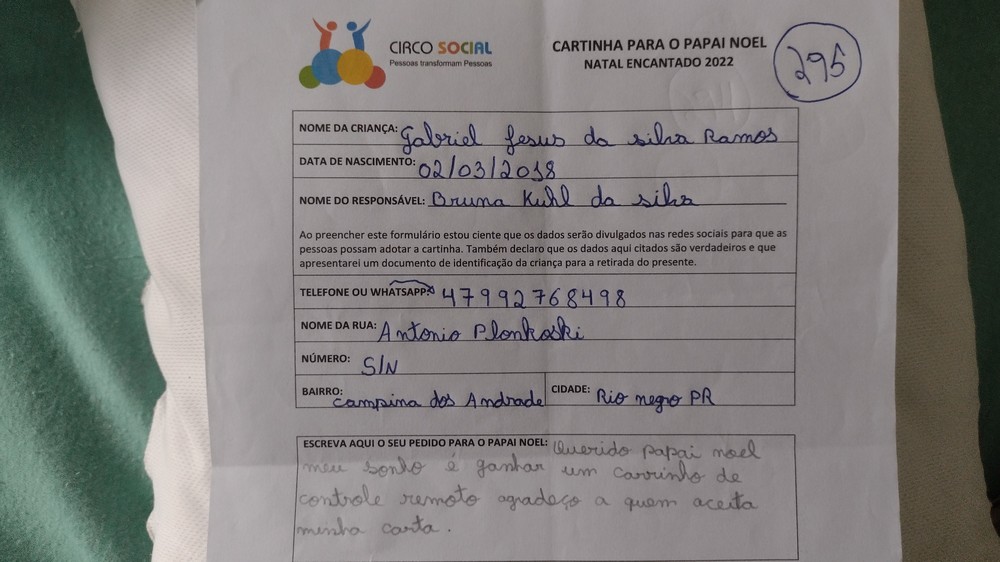 CIRCO SOCIAL
Pessoas transformam Pessoas
CARTINHA PARA O PAPAI NOEL
NATAL ENCANTADO 2022
295
NOME DA CRIANÇA: Gabriel Jesus da silva Ramos
DATA DE NASCIMENTO: 02/03/2018
NOME DO RESPONSÁVEL: Bruna Kuhl da silva
Ao preencher este formulário estou ciente que os dados serão divulgados nas redes sociais para que as
pessoas possam adotar a cartinha. Também declaro que os dados aqui citados são verdadeiros e que
apresentarei um documento de identificação da criança para a retirada do presente.
TELEFONE OU WHATSAPP: 47992768498
NOME DA RUA: Antonio Plonkoski
NÚMERO: S/N
BAIRRO: Campina dos Andrade CIDADE: Rio negro PR
ESCREVA AQUI O SEU PEDIDO PARA O PAPAI NOEL: Querido papai noel
meu sonho é ganhar um carrinho de
controle remoto agradeço a quem aceita
minha carta.